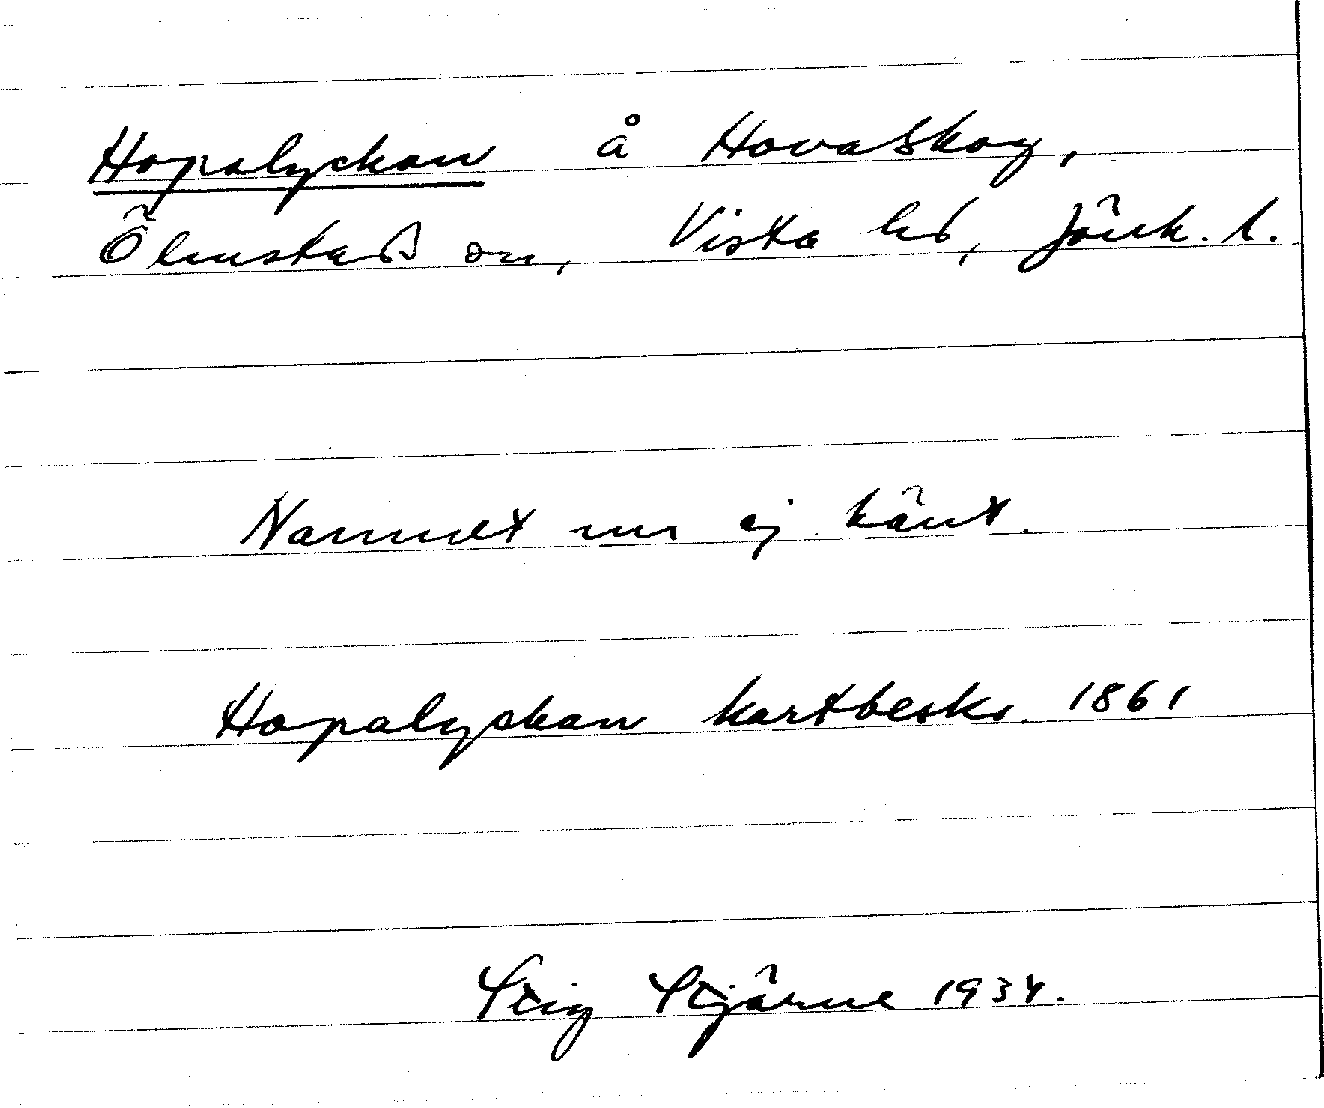 Hopalyckan å Hovaskog,
Ölmstad sn, Vista hd, Jönk. l.
Namnet nu ej känt.
Hopalyckan kartbeskr. 1861
Stig Stjärne 1934.